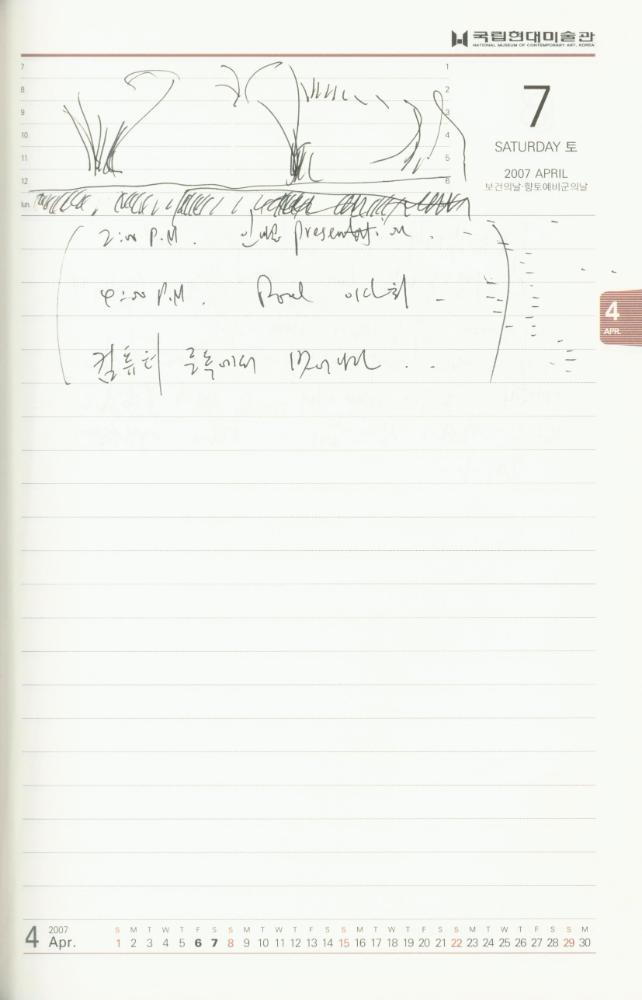 국립현대미술관
NATIONAL MUSEUM OF CONTEMPORARY ART, KOREA
7
SATURDAY 토
2007 APRIL
보건의날·향토예비군의날
7 1
8 2
9 3
10 4
11 5
12 6
lun.
2:00 P.M. presentation.
4:00 P.M.
4
APR.
컴퓨터
4 2007
Apr.
S M T W T F S S M T W T F S S M T W T F S S M T W T F S S M
1 2 3 4 5 6 7 8 9 10 11 12 13 14 15 16 17 18 19 20 21 22 23 24 25 26 27 28 29 30